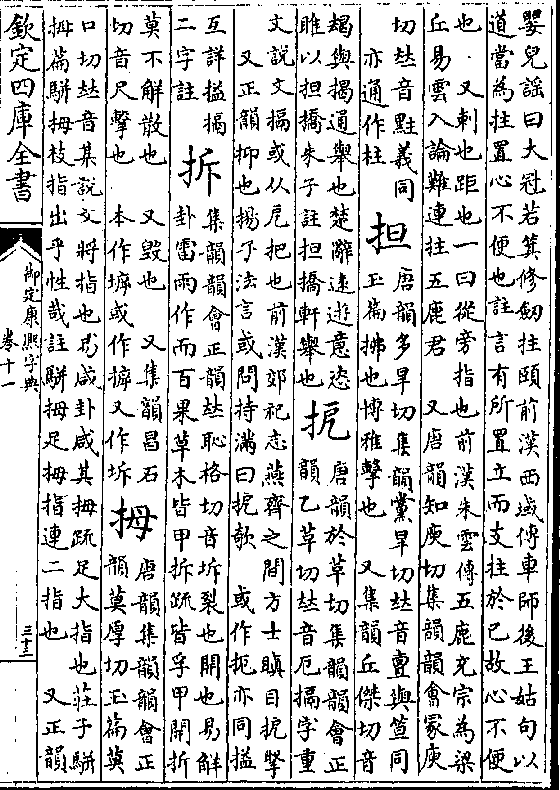 嬰兒謡曰大冠若箕修劒拄頤前漢西域傳車師後王姑句以
道當為拄置心不便也註言有所置立而支拄於已故心不便
也　又刺也距也一曰從旁指也前漢朱雲傳五鹿充宗為梁
丘易雲入論難連拄五鹿君　又唐韻知庾切集韻韻會冡庾
切𠀤音黈義同
亦通作柱
担
唐韻多旱切集韻黨旱切𠀤音亶與笪同
玉篇拂也博雅擊也　又集韻丘傑切音
朅與揭通舉也楚辭遠遊意恣
睢以担撟朱子註担撟軒舉也
㧖
唐韻於革切集韻韻會正
韻乙革切𠀤音厄搹字重
文說文搹或从戹把也前漢郊祀志燕齊之間方士瞋目㧖掔
又正韻抑也揚子法言或問持滿曰㧖欹　或作扼亦同搤
互詳搤搹
二字註
拆
集韻韻會正韻𠀤恥格切音坼裂也開也易解
卦雷雨作而百果草木皆甲拆疏皆孚甲開拆
莫不解散也　又毀也　又集韻昌石
切音尺擊也　本作㙜或作擗又作坼
拇
唐韻集韻韻會正
韻莫厚切玉篇莫
口切𠀤音某說文將指也易咸卦咸其拇疏足大指也莊子駢
拇篇駢拇枝指出乎性哉註駢拇足拇指連二指也　又正韻
欽定四庫全書
御定康熙字典
卷十一
三十三